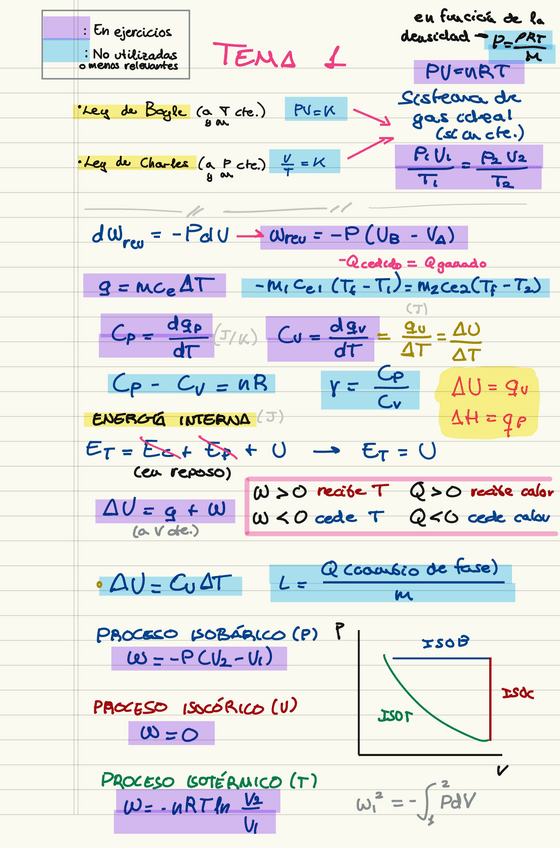 : En ejercicios
: No utilizadas
o menos relevantes
TEMA 1
en función de la
densidad → P = ρRT/M
PV = nRT
• Ley de Boyle (a T cte.) PV = K
y n
Sistema de
gas ideal
(si n cte.)
• Ley de Charles (a P cte.) V/T = K
y n
P₁V₁/T₁ = P₂V₂/T₂
dWrev = -PdV → Wrev = -P(VB - VA)
-Qcedido = Qganado
q = mceΔT
-m₁ce₁(Tf - T₁) = m₂ce₂(Tf - T₂)
(J)
Cp = dqp/dT (J/K) Cv = dqv/dT = qv/ΔT = ΔU/ΔT
Cp - Cv = nR γ = Cp/Cv
ΔU = qv
ΔH = qp
ENERGÍA INTERNA (J)
ET = Ec + Ep + U → ET = U
(en reposo)
W > 0 recibe T Q > 0 recibe calor
W < 0 cede T Q < 0 cede calor
ΔU = q + W
(a V cte.)
ΔU = CvΔT L = Q(cambio de fase)/m
PROCESO ISOBÁRICO (P)
W = -P(V₂ - V₁)
PROCESO ISOCÓRICO (V)
W = 0
PROCESO ISOTÉRMICO (T)
W = -nRT ln V₂/V₁
P
ISOB
ISOC
ISOT
V
W₁² = -∫₁² PdV